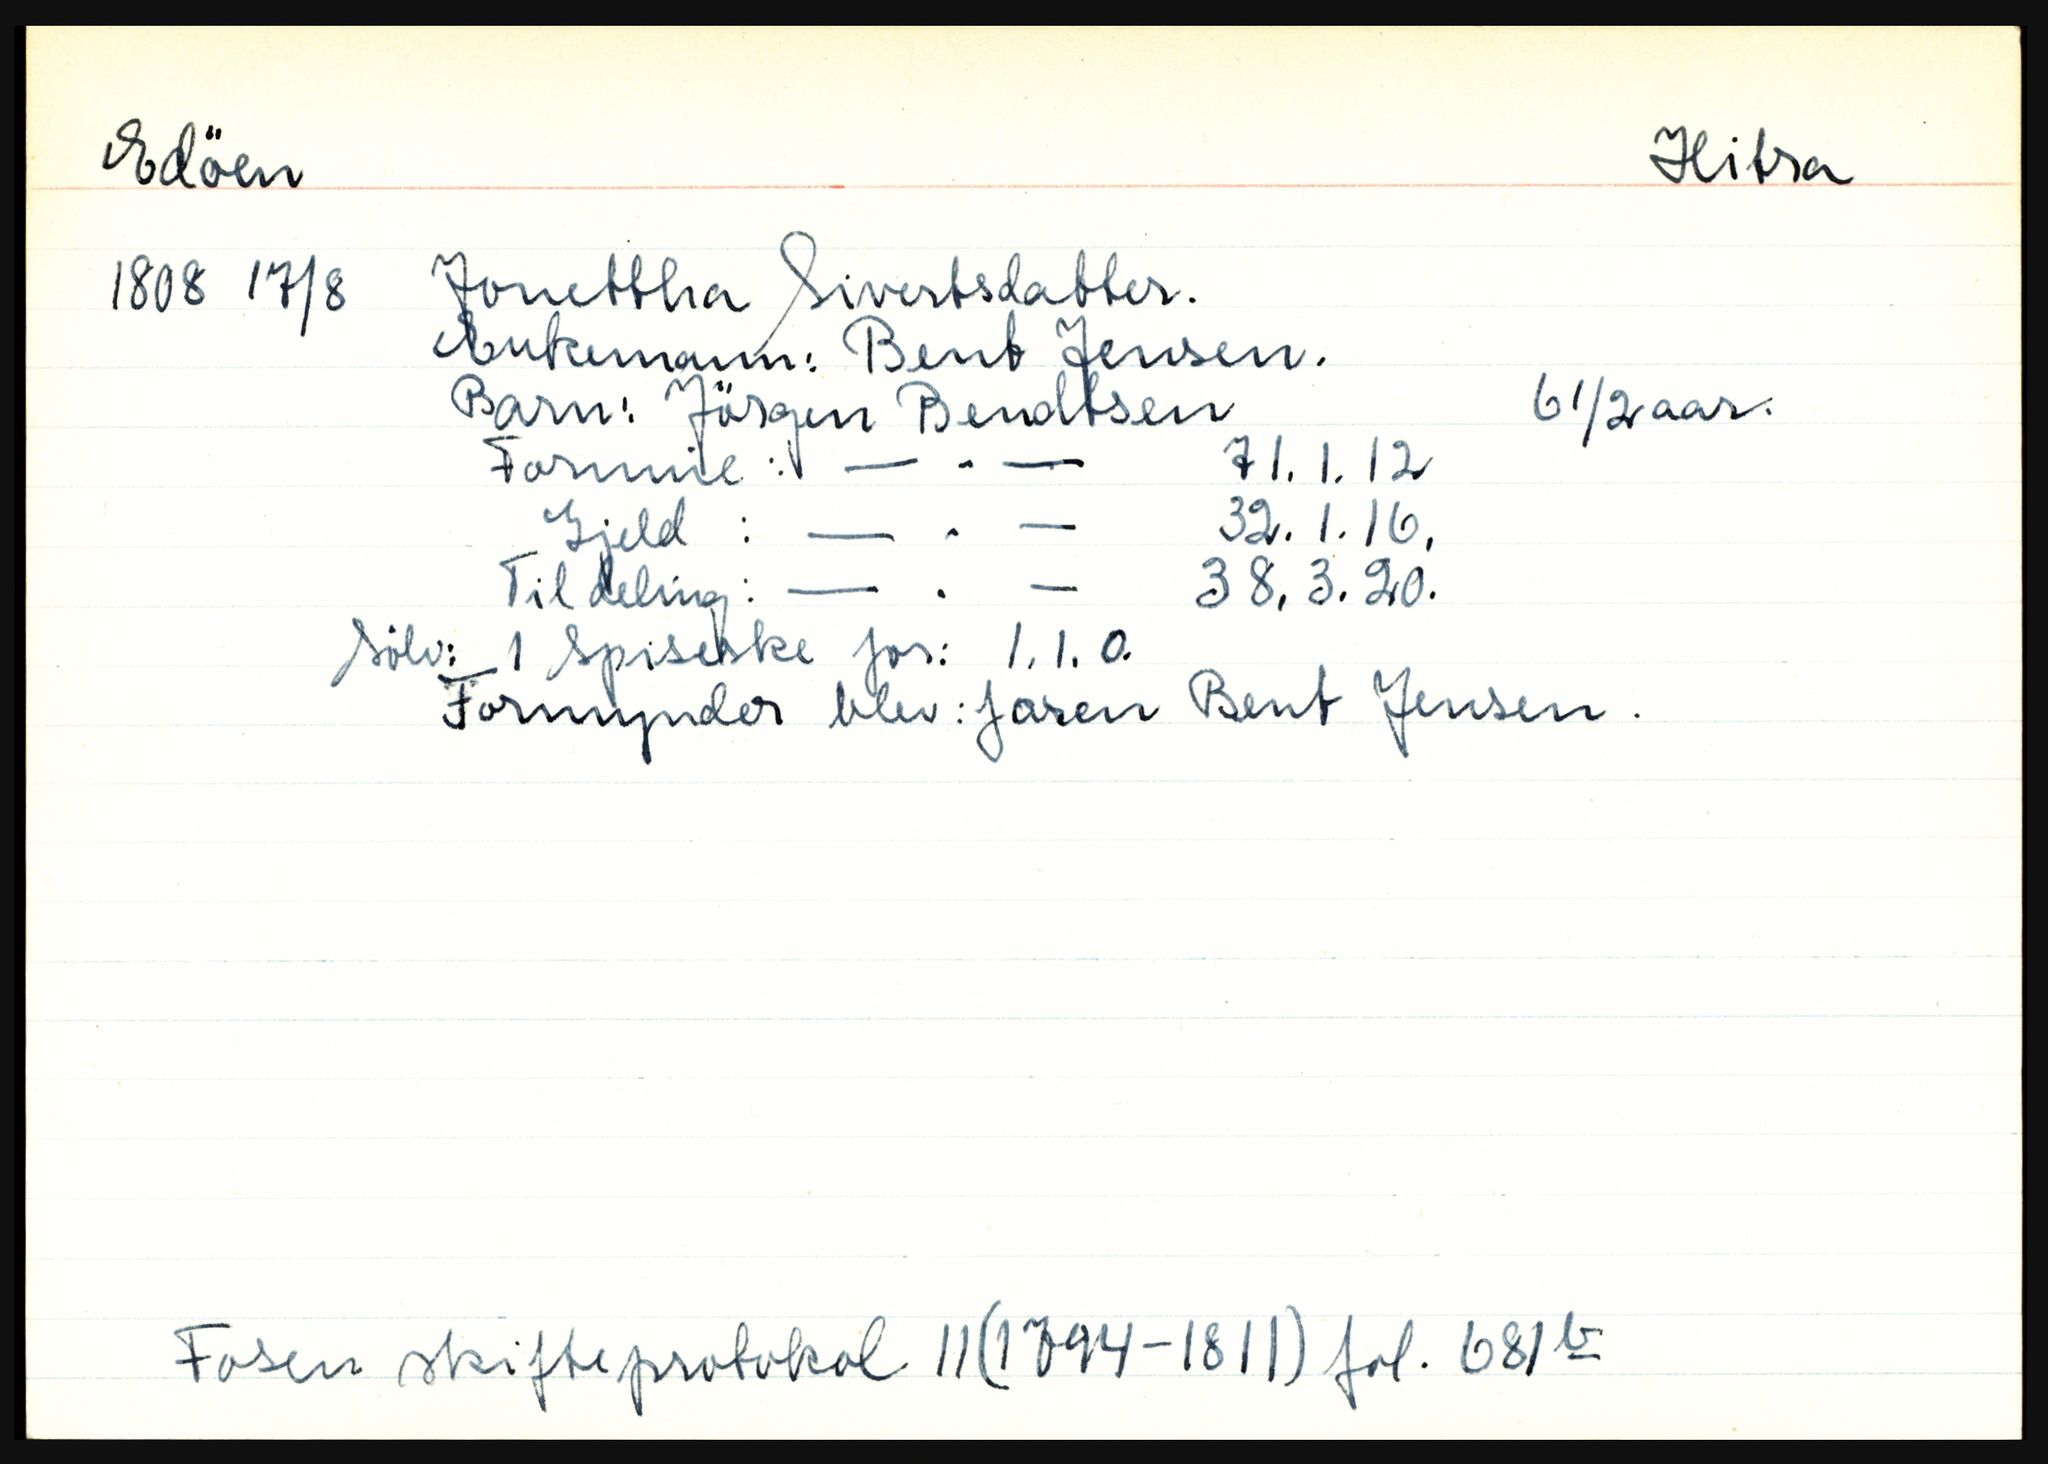 Edöen Hitra
1808 17/8 Jonettha Sivertsdatter.
Enkemann: Bent Jensen.
Barn: Jörgen Bendtsen 6 1/2 aar.
Formue: — . — 71. 1. 12
Gjeld : — . — 32. 1. 16.
Til deling: — . — 38. 3. 20.
Sölv: 1 Spiseske for: 1. 1. 0.
Formynder blev: faren Bent Jensen.
Fosen skifteprotokol 11 (1794-1811) fol. 681 b